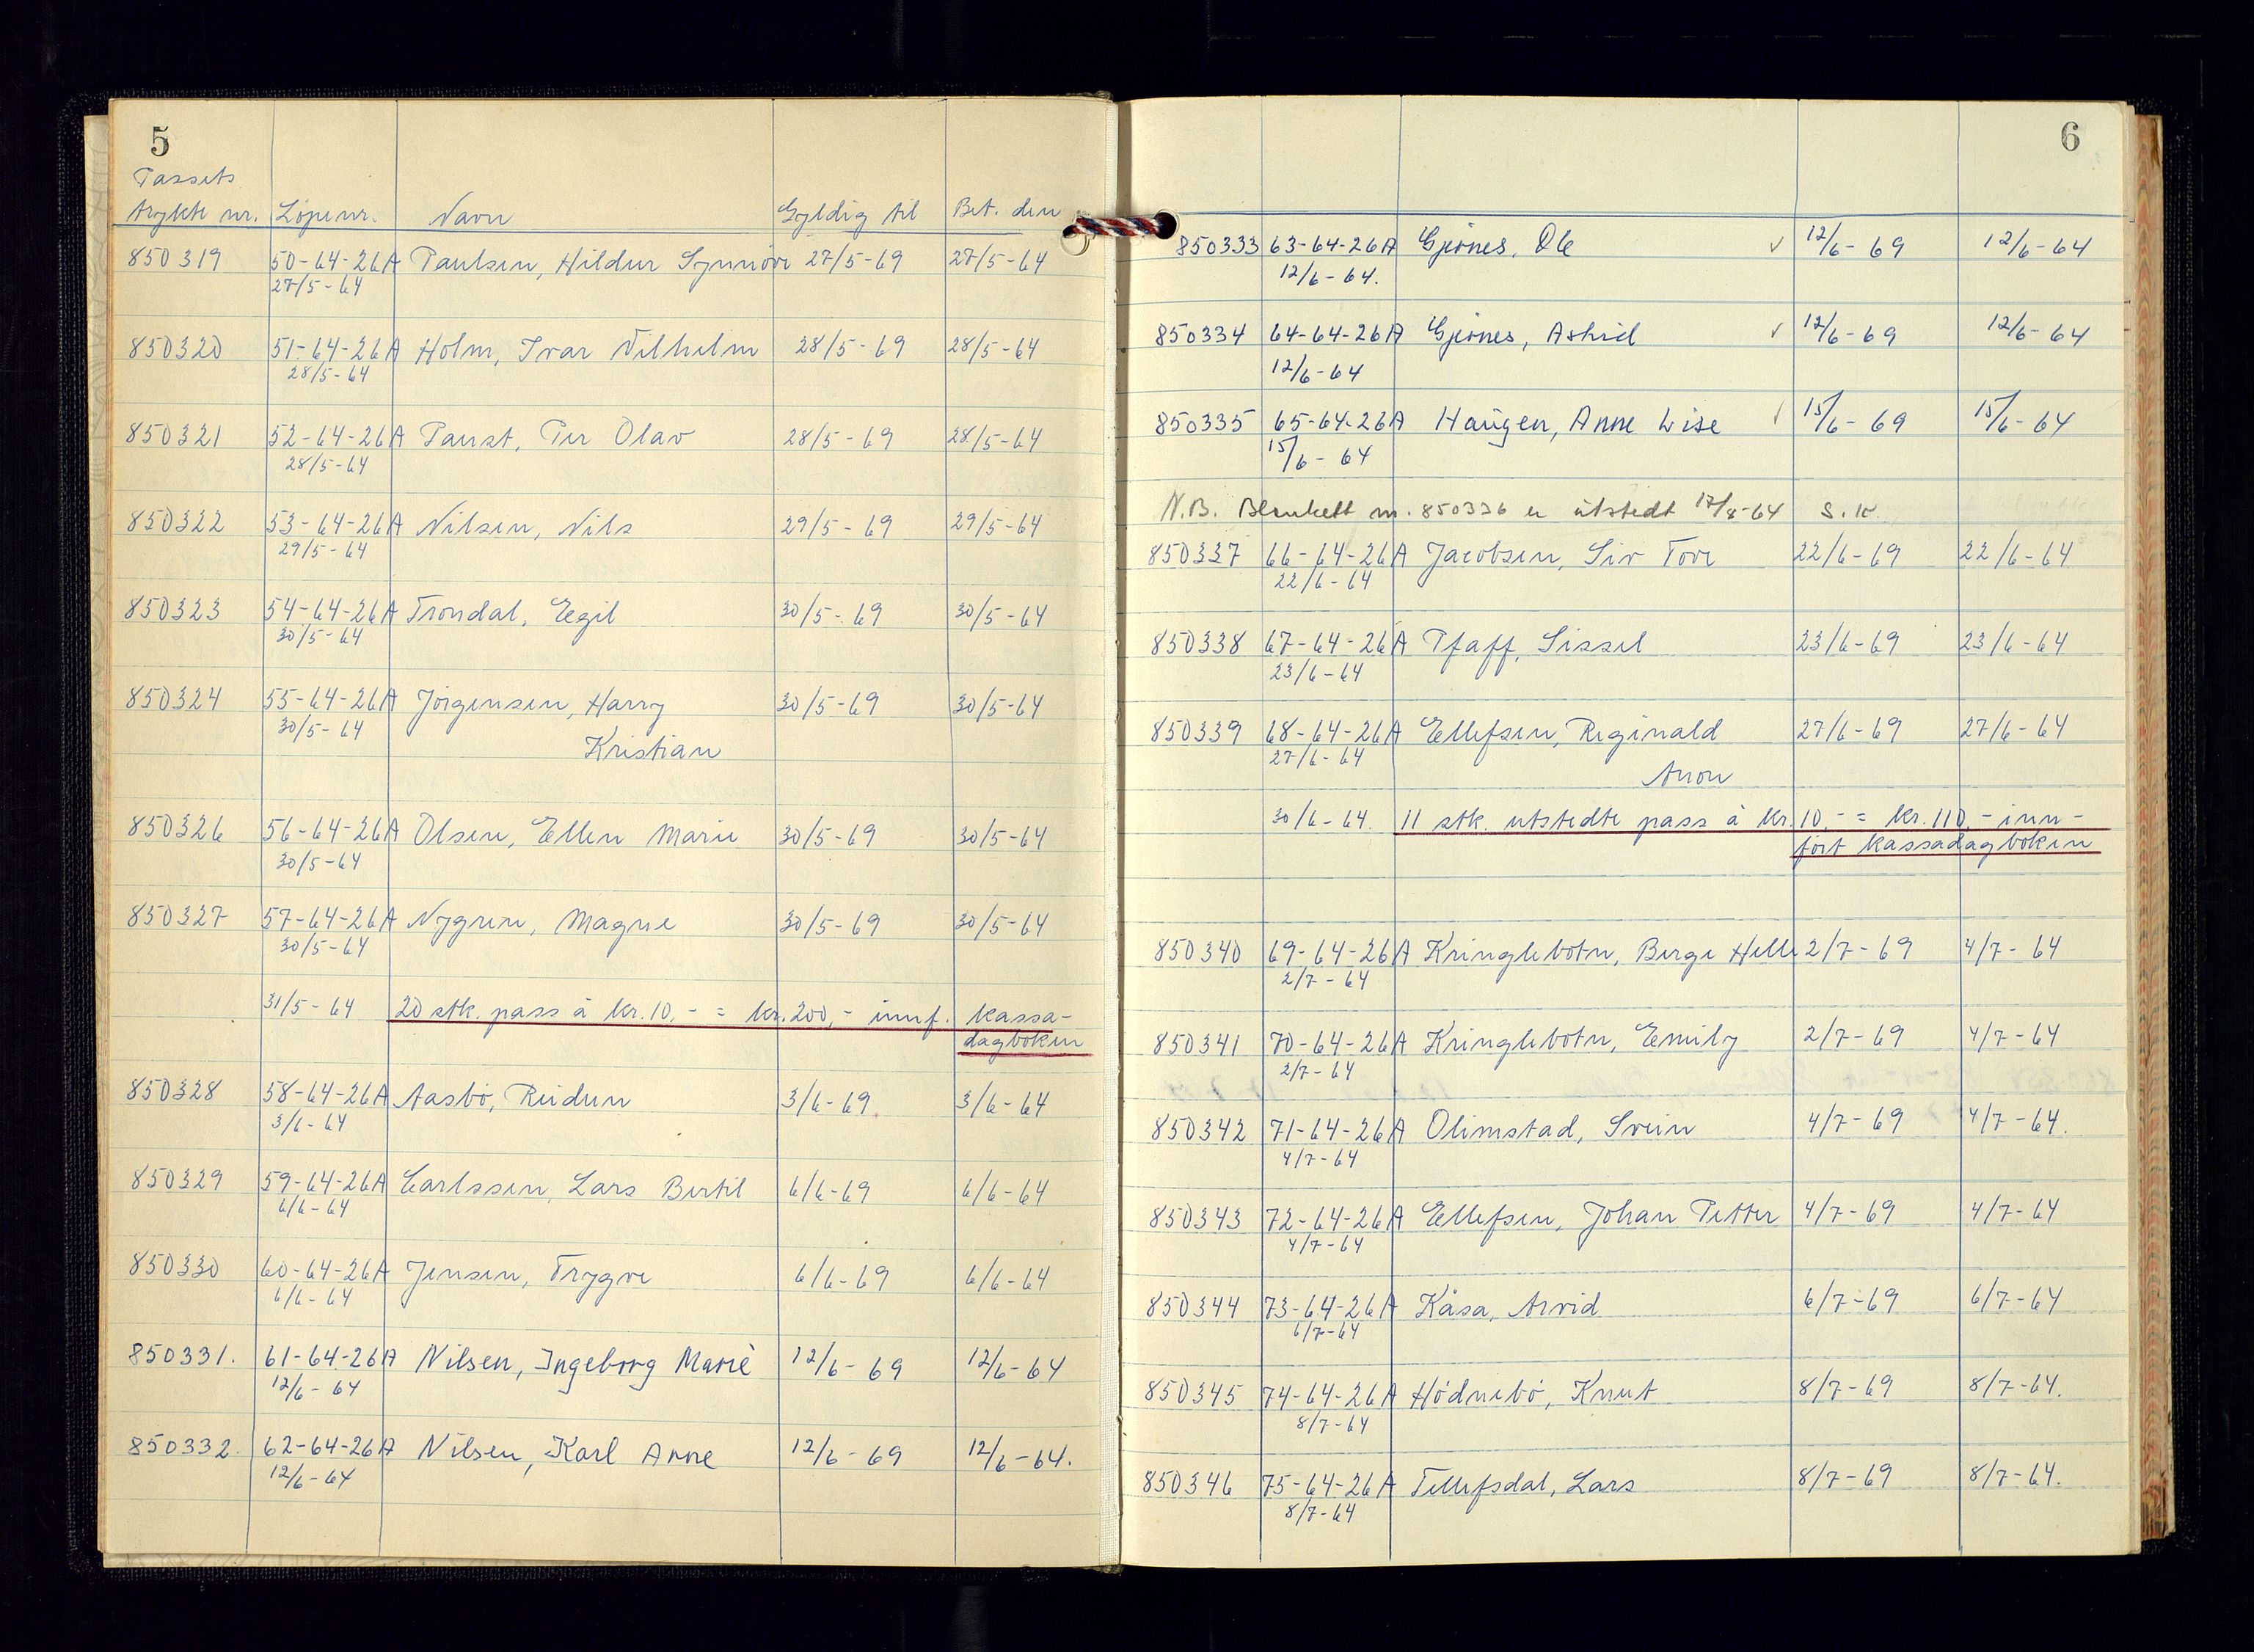 5
Passets
trykte nr. Löpenr. Navn Gyldig til Bet. den
850319 50-64-26A Paulsen, Hildur Synnöve 27/5-69 27/5-64
27/5-64
850320 51-64-26A Holm, Ivar Vilhelm 28/5-69 28/5-64
28/5-64
850321 52-64-26A Paust, Per Olav 28/5-69 28/5-64
28/5-64
850322 53-64-26A Nilsen, Nils 29/5-69 29/5-64
29/5-64
850323 54-64-26A Trondal, Egil 30/5-69 30/5-64
30/5-64
850324 55-64-26A Jörgensen, Harry 30/5-69 30/5-64
30/5-64
Kristian
850326 56-64-26A Olsen, Ellen Marie 30/5-69 30/5-64
30/5-64
850327 57-64-26A Nygren, Magne 30/5-69 30/5-64
30/5-64
31/5-64 20 stk. pass à kr. 10,- = kr. 200,- innf. kassa-
dagboken
850328 58-64-26A Aasbö, Reidun 3/6-69 3/6-64
3/6-64
850329 59-64-26A Carlssen, Lars Bertil 6/6-69 6/6-64
6/6-64
850330 60-64-26A Jensen, Trygve 6/6-69 6/6-64
6/6-64
850331. 61-64-26A Nilsen, Ingeborg Marie 12/6-69 12/6-64
12/6-64
850332. 62-64-26A Nilsen, Karl Arne 12/6-69 12/6-64.
12/6-64
6
850333 63-64-26A Gjönes, Ole ✓ 12/6-69 12/6-64
12/6-64.
850334 64-64-26A Gjönes, Astrid ✓ 12/6-69 12/6-64
12/6-64
850335 65-64-26A Haugen, Anne Lise ✓ 15/6-69 15/6-64
15/6-64
N.B. Blankett nr. 850336 er utstedt 17/8-64 S.K.
850337 66-64-26A Jacobsen, Siv Tove 22/6-69 22/6-64
22/6-64
850338 67-64-26A Pfaff, Sissel 23/6-69 23/6-64
23/6-64
850339 68-64-26A Ellefsen, Reginald 27/6-69 27/6-64
27/6-64
Aron
30/6-64. 11 stk. utstedte pass à kr. 10,- = kr. 110,- inn-
fört kassadagboken
850340 69-64-26A Kringlebotn, Berge Helle 2/7-69 4/7-64
2/7-64
850341 70-64-26A Kringlebotn, Emily 2/7-69 4/7-64
2/7-64
850342 71-64-26A Olimstad, Svein 4/7-69 4/7-64.
4/7-64
850343 72-64-26A Ellefsen, Johan Petter 4/7-69 4/7-64
4/7-64
850344 73-64-26A Kåsa, Arvid 6/7-69 6/7-64
6/7-64
850345 74-64-26A Hödnebö, Knut 8/7-69 8/7-64.
8/7-64
850346 75-64-26A Tellefsdal, Lars 8/7-69 8/7-64.
8/7-64